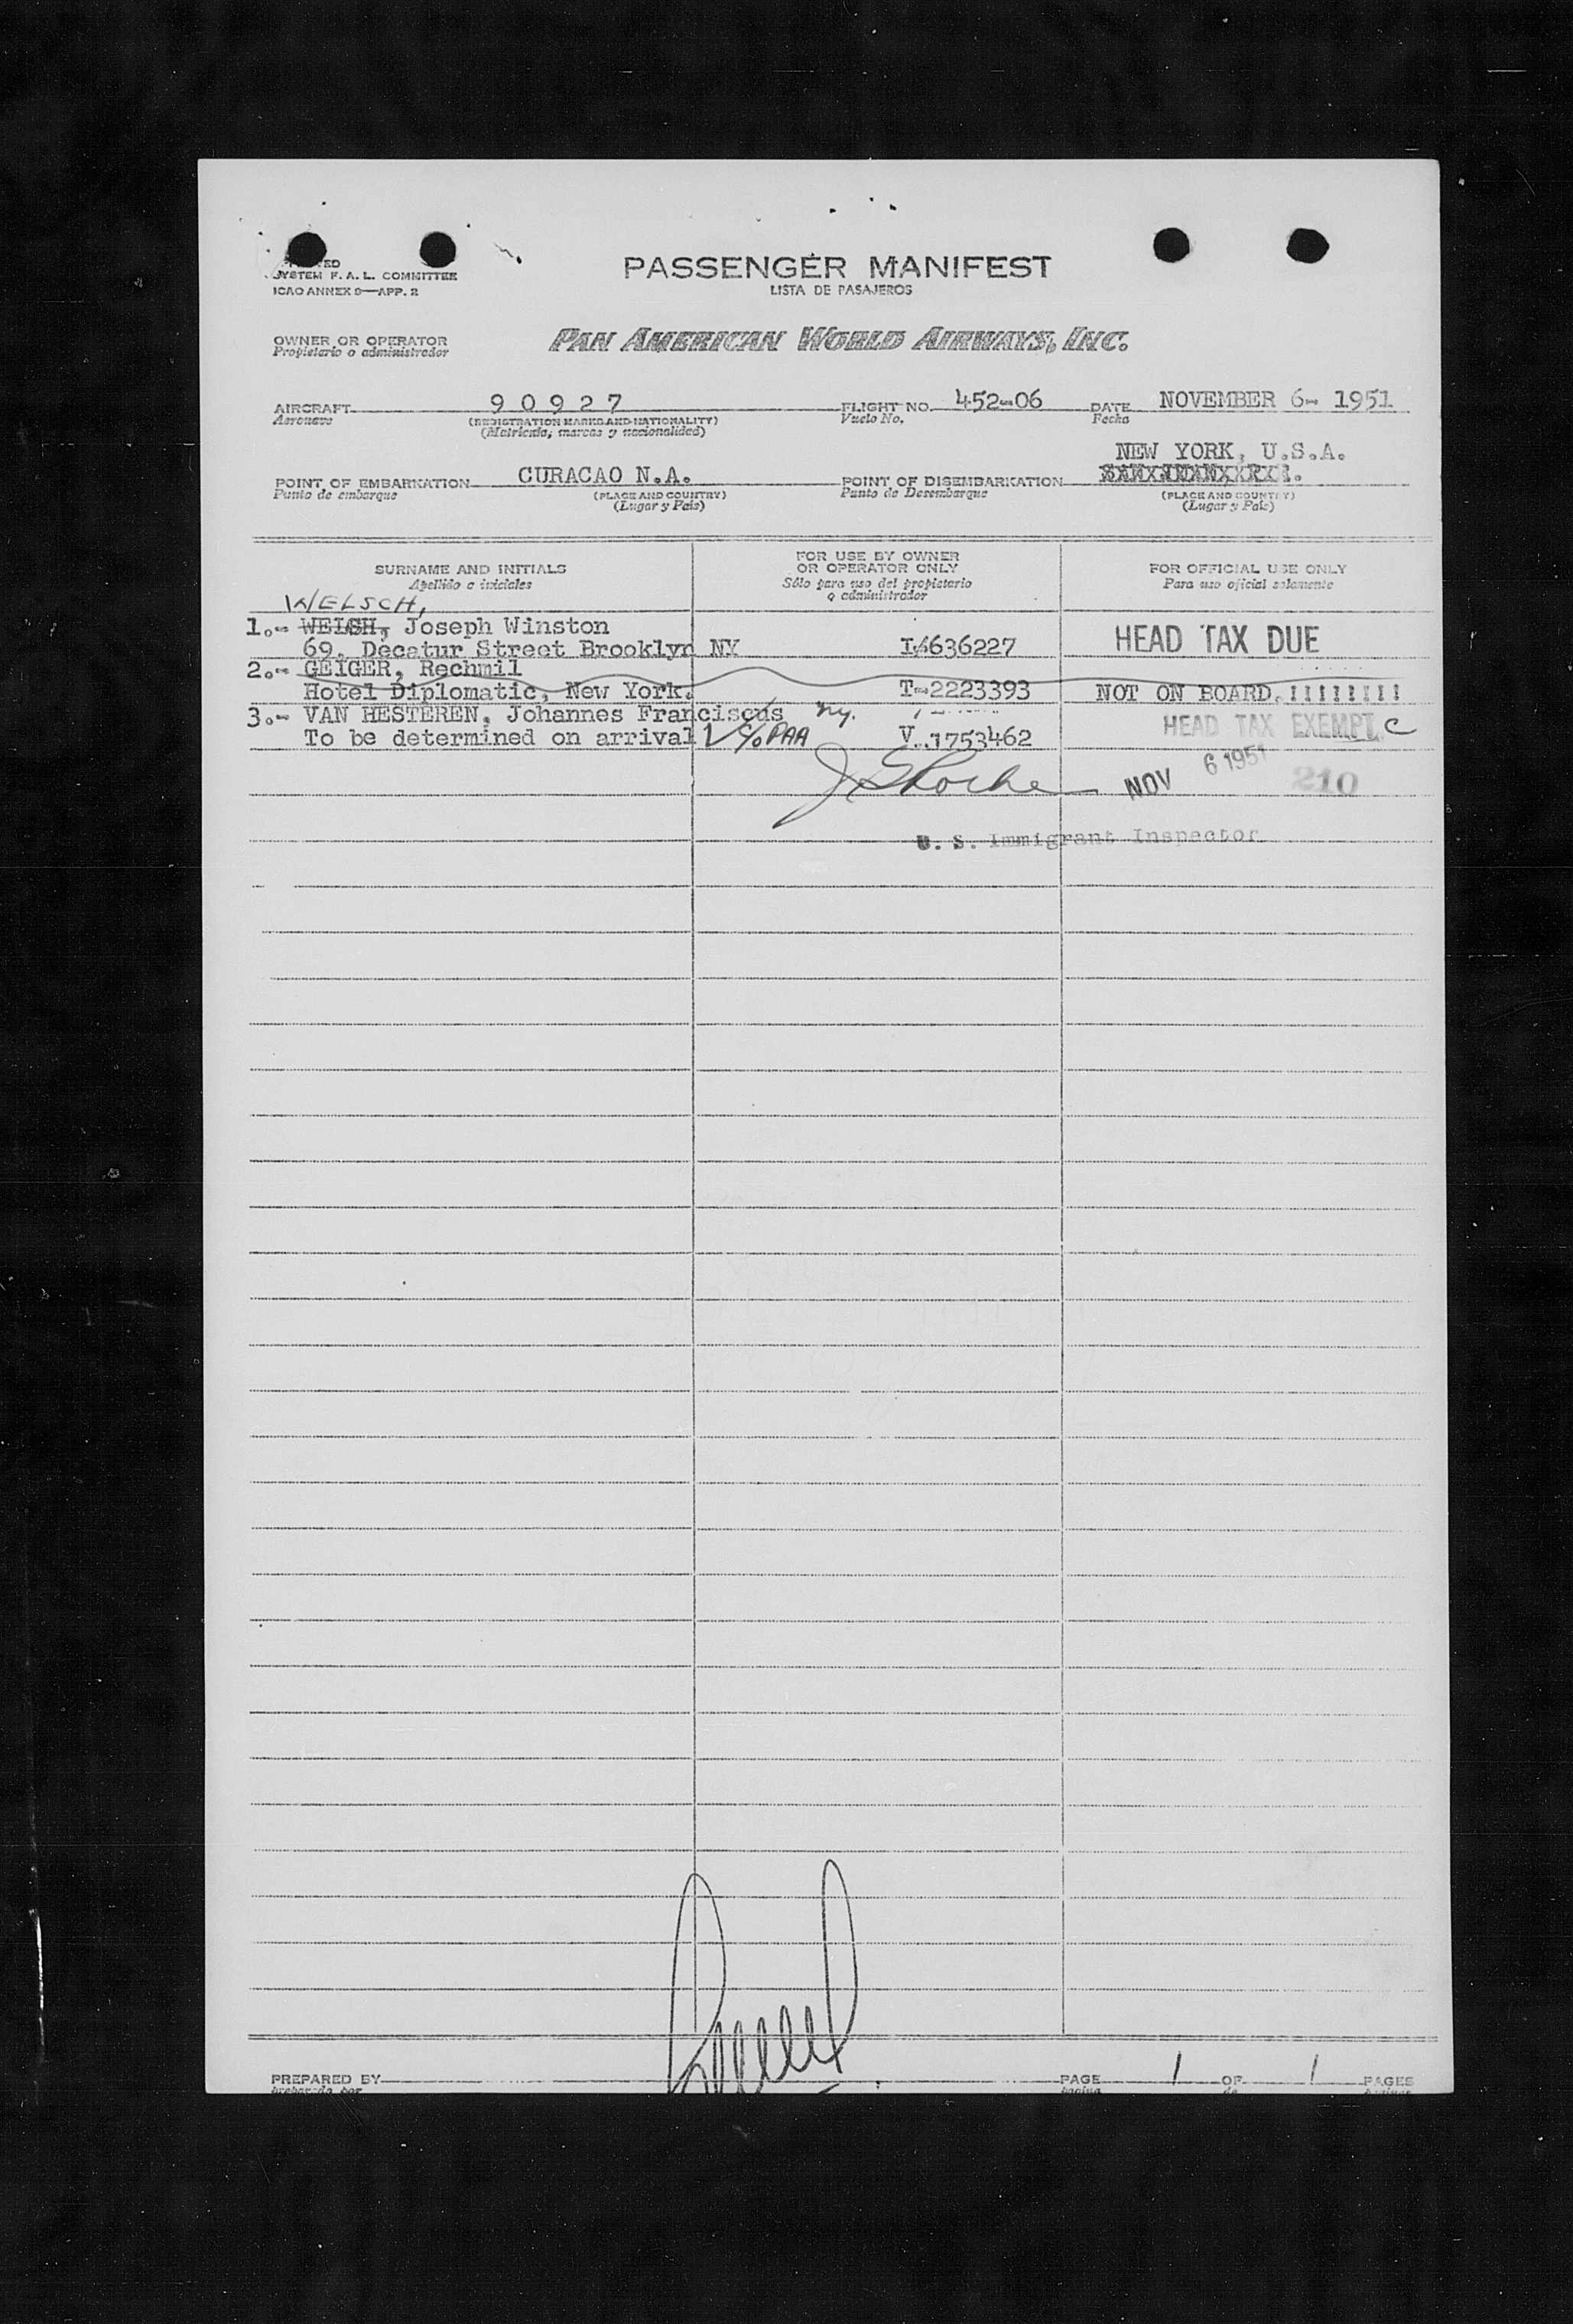 SYSTEM F. A. L. COMMITTEE
ICAO ANNEX 9—APP. 2
PASSENGER MANIFEST
LISTA DE PASAJEROS
OWNER OR OPERATOR
Propietario o administrador
PAN AMERICAN WORLD AIRWAYS, INC.
AIRCRAFT 9 0 9 2 7 FLIGHT NO. 452-06 DATE NOVEMBER 6- 1951
Aeronave (REGISTRATION MARKS AND NATIONALITY) Vuelo No. Fecha
(Matrícula, marcas y nacionalidad)
NEW YORK, U.S.A.
POINT OF EMBARKATION CURACAO N.A. POINT OF DISEMBARKATION
Punto de embarque (PLACE AND COUNTRY) Punto de Desembarque (PLACE AND COUNTRY)
(Lugar y País) (Lugar y País)
SURNAME AND INITIALS
Apellido e iniciales
FOR USE BY OWNER
OR OPERATOR ONLY
Sólo para uso del propietario
o administrador
FOR OFFICIAL USE ONLY
Para uso oficial solamente
WELSCH,
1.- WELSH, Joseph Winston
69, Decatur Street Brooklyn NY 636227 HEAD TAX DUE
2.- GEIGER, Rechmil
Hotel Diplomatic, New York. T-2223393 NOT ON BOARD.!!!!!!!!
3.- VAN HESTEREN, Johannes Franciscus NY.
To be determined on arrival c/o PAA V.1753462 HEAD TAX EXEMPT C
NOV 6 1951 210
U. S. Immigrant Inspector
PREPARED BY PAGE 1 OF 1 PAGES